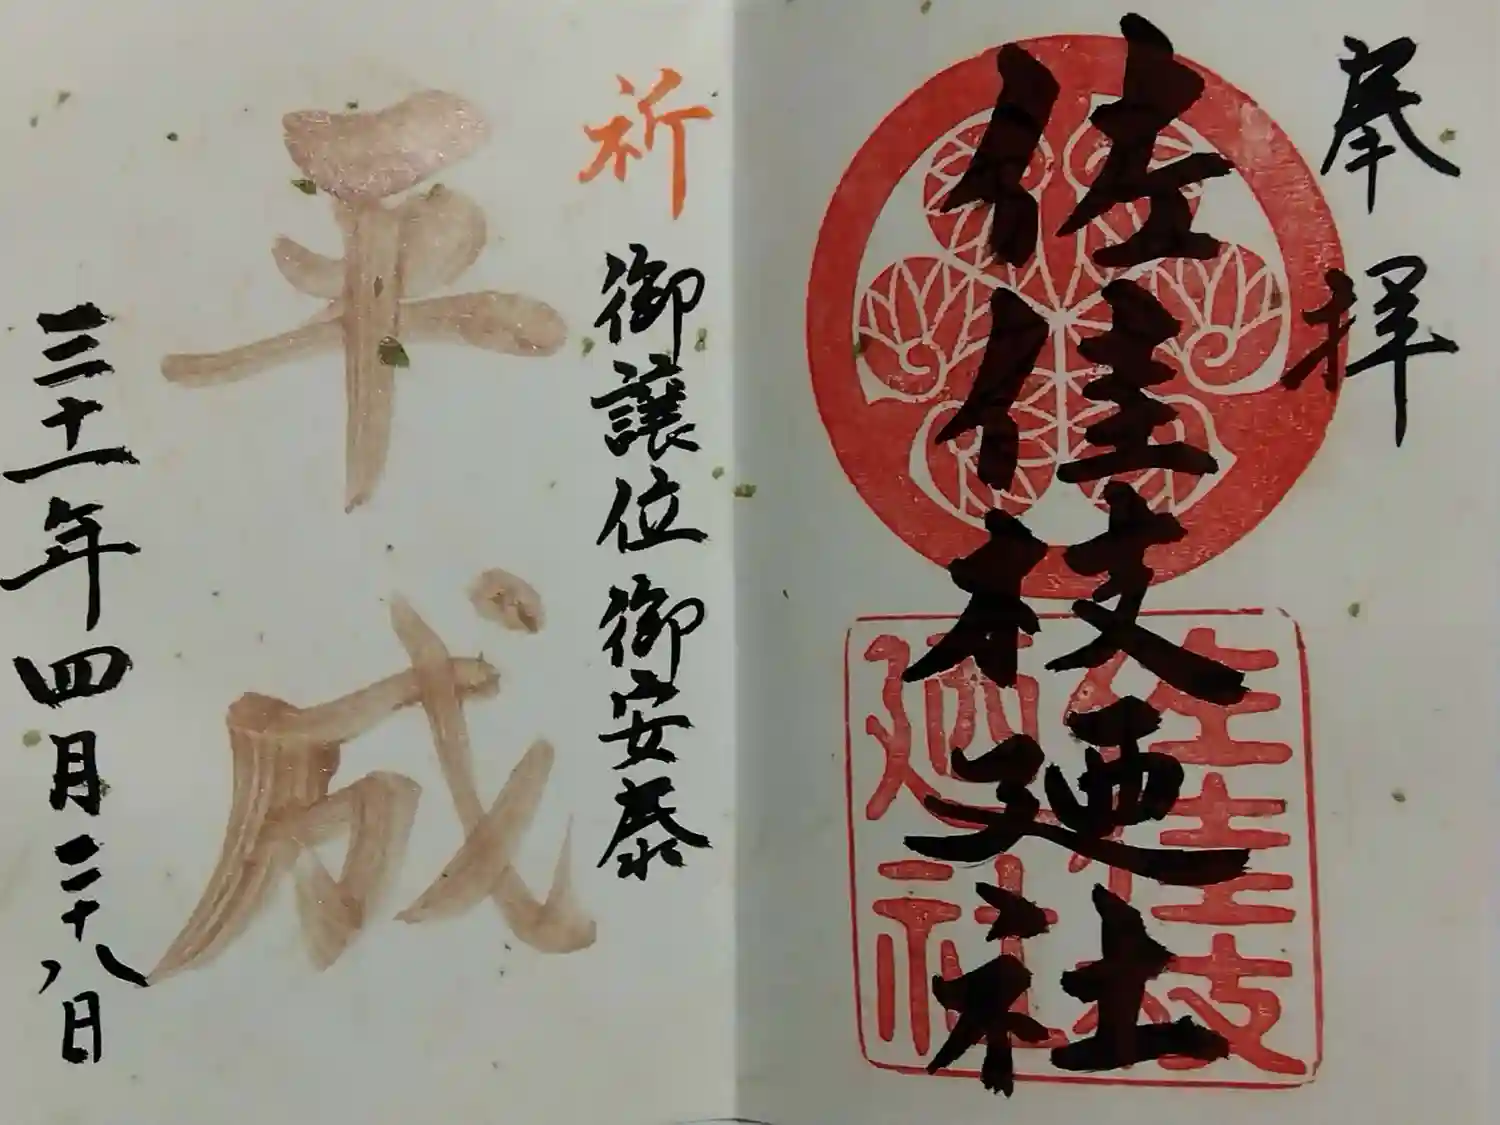 奉拝
佐佳枝廼社
佐佳枝
廼社
祈 御譲位御安泰
平成
三十一年四月二十八日